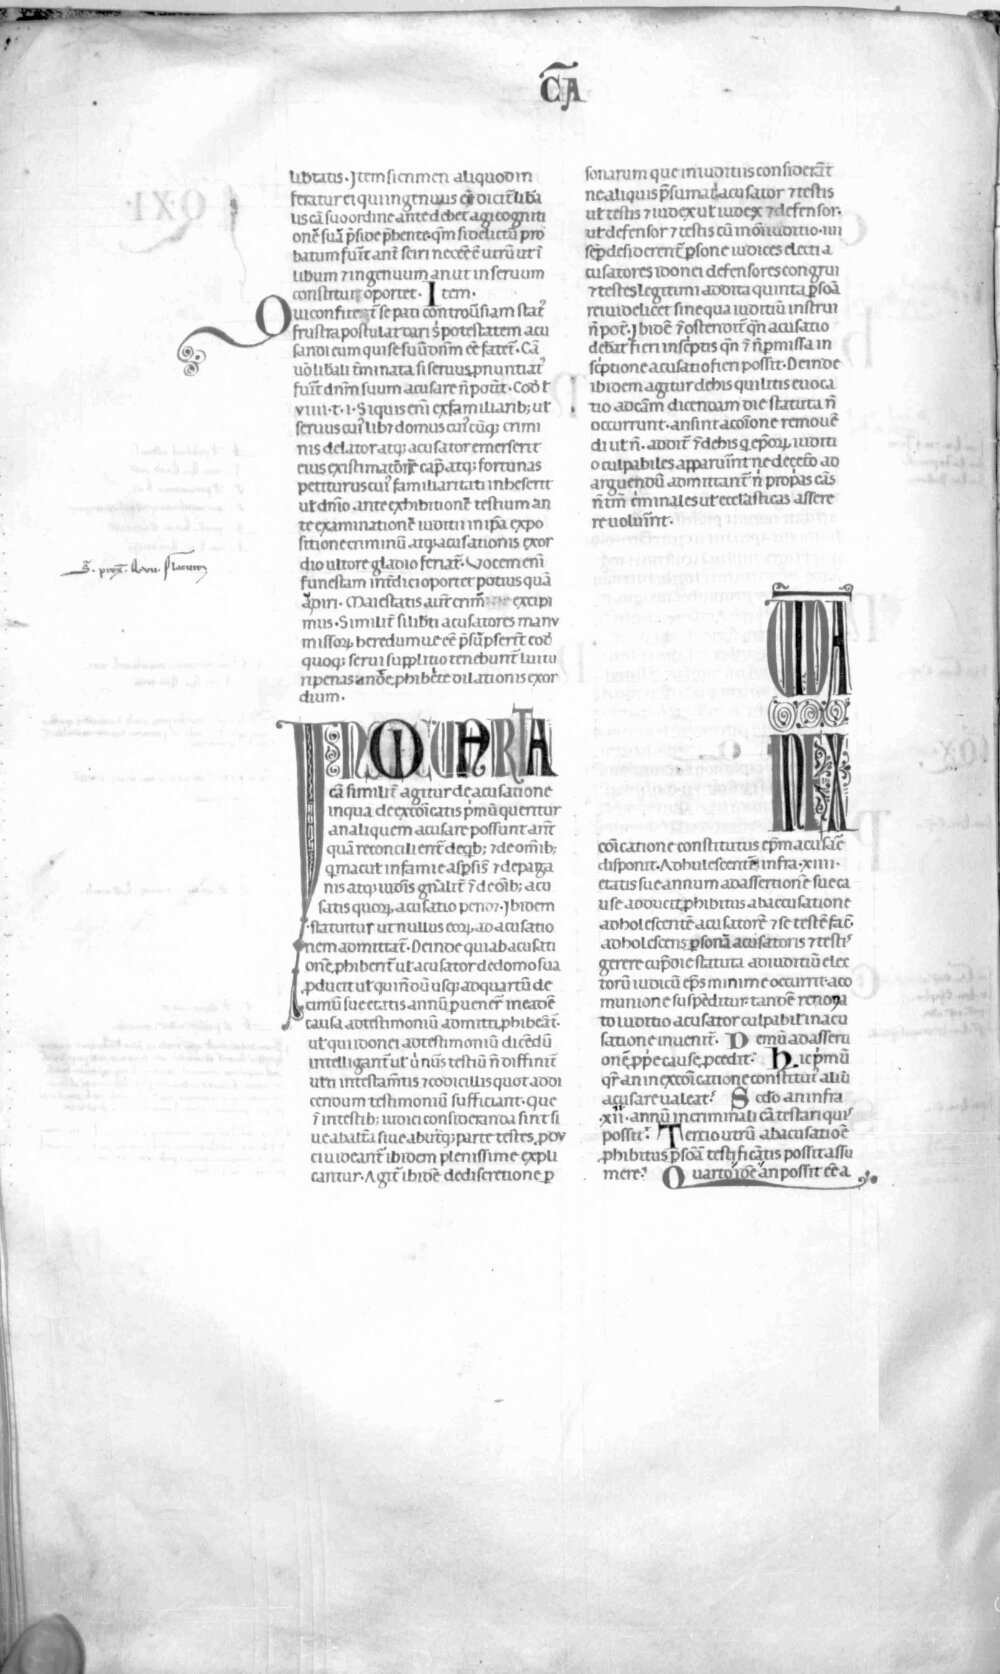 CA
libtatis. Item si crimen aliquod in
feratur ei qui ingenuus eē dicit liba
lis cā suo ordine ante debet agi cogniti
onē suā pside pbente. qm si delictū pro
batum fuit ant sciri necē ē utrū ut ī
libum ⁊ ingenuum an ut in seruum
constitui oportet. Item.
Qui confitet se pati controusiam stat
frustra postulat dari s potestatem acu
sandi eum qui se suū dnm eē fatet. Cā
uo libali tminata si seruus pnuntiat
fuit dnm suum acusare n potit. Cod l
viiii. t. i. Si quis eni ex familiarib; ut
seruus cui lib; domus cui cūq; crimi
nis delator atq; acusator emerserit
eius existimatōnē cap atq; fortunas
petiturus cui familiaritati inheserit
ut dnio ante exhibitionē testium an
te examinationē iuditii in ipa expo
sitione criminū atq; acusationis exor
dio ultore gladio feriat. Vocem eni
funestam intdici oportet potius quā
apiri. Maiestatis aut crim excipi
mus. Similit si libti acusatores manu
missoꝝ heredumue eē psūpserit eod
quoq; serui suplitio tenebunt luitu
ri penas ante phibite dilationis exor
dium.
IN QUARTA
cā similit agitur de acusatione
in qua de excōicatis pmū queritur
an aliquem acusare possunt ant
quā reconcilient de qb; ⁊ de omib;
q macut infamie aspsis ⁊ de paga
nis atq; iudeis gnalit ī de oib; acu
satis quoꝝ acusatio penor. Ibidem
statuitur ut nullus eoꝝ ad acusatio
nem admittat. Deinde quia ab acusati
onē phibent ut acusator de domo sua
pducit ut qui nō ūsq; ad quartū de
cimū sue etatis annū puener in eadē
causa ad testimoniū admitti phibeat.
ut qui idonei ad testimoniū dicēdū
intelligant ut unius testiū n diffinit
uti in testamtis ⁊ codicillis quot addi
cendum testimoniū suffitiant. que
ī in testib; iudici consideranda sint si
ue ab alta siue ab utq; parte testes pdu
ci uideant ibidem plenissime expli
cantur. Agit ibidē de discretione p
sonarum que in iuditiis considerat
ne aliquis psumat acusator ⁊ testis
ut testis ⁊ iudex ut iudex ⁊ defensor.
ut defensor ⁊ testis cū in oī iuditio. iiii
sep desiderent psone iudices electi a
cusatores idonei defensores congrui
⁊ testes legitimi addita quinta psōa
rei uidelicet sine qua iuditiū instrui
n pot. Ibidē ī ostendit qn acusatio
debat fieri in scptis qn ī n pmissa in
scptione acusatio fieri possit. Deinde
ibidem agitur de his qui litis euoca
tio ad cām dicendam die statuta n
occurrunt. an sint a cōione remoue
di ut n. addit ī de his q epcoꝝ iuditi
o culpabiles apparuint ne deceto ad
arguendū admittant n propas cās
n tm cminales ut ecclasticas assere
re uoluint.
QUIDAM EX
cōicatione constitutus epm acusare
disponit. Adhulescentē infra. xiiii.
etatis sue annum ad assertionē sue ca
use adducit. phibitus ab accusatione
adholescentē acusatorē ⁊ se testē facē.
adholescens psonā acusatoris ⁊ testis
gerere cupit die statuta ad iuditiū elec
torū iudicū eps minime occurrit. a co
munione suspēditur. tandē renova
to iuditio acusator culpabilis in acu
satione inuenit. Demū ad asserti
onē ppe cause pcedit. Hic pmū
qr an in excōicatione constitut aliū
acusare ualeat? Secdo an infra
.xii. annū in criminali cā testari quis
possit? Tertio utrū ab acusatiōe
phibitus psōā testificātis possit assu
mere? Quarto idē an possit eē a